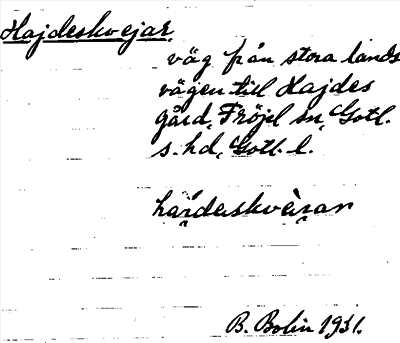 Hajdeskvejar.
väg från stora lands
vägen till Hajdes
gård, Fröjel sn, Gotl.
s. hd, Gotl. l.
B. Bolin 1931.